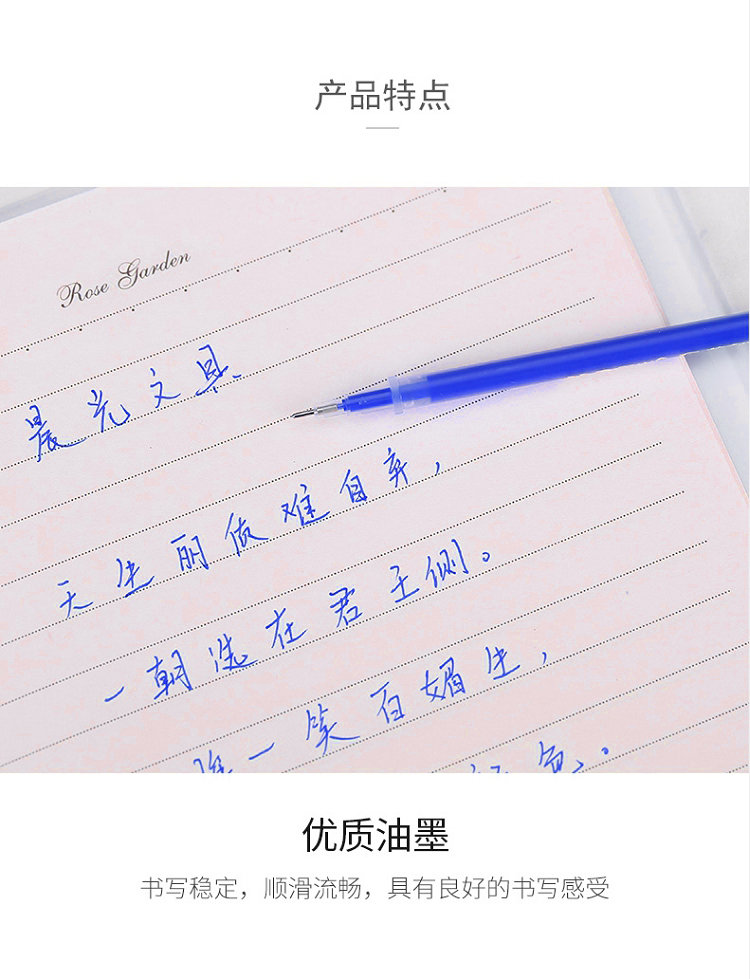 产品特点
Rose Garden
晨光文具
天生丽做难自弃，
一朝选在君王侧。
一笑百媚生，
色。
优质油墨
书写稳定，顺滑流畅，具有良好的书写感受